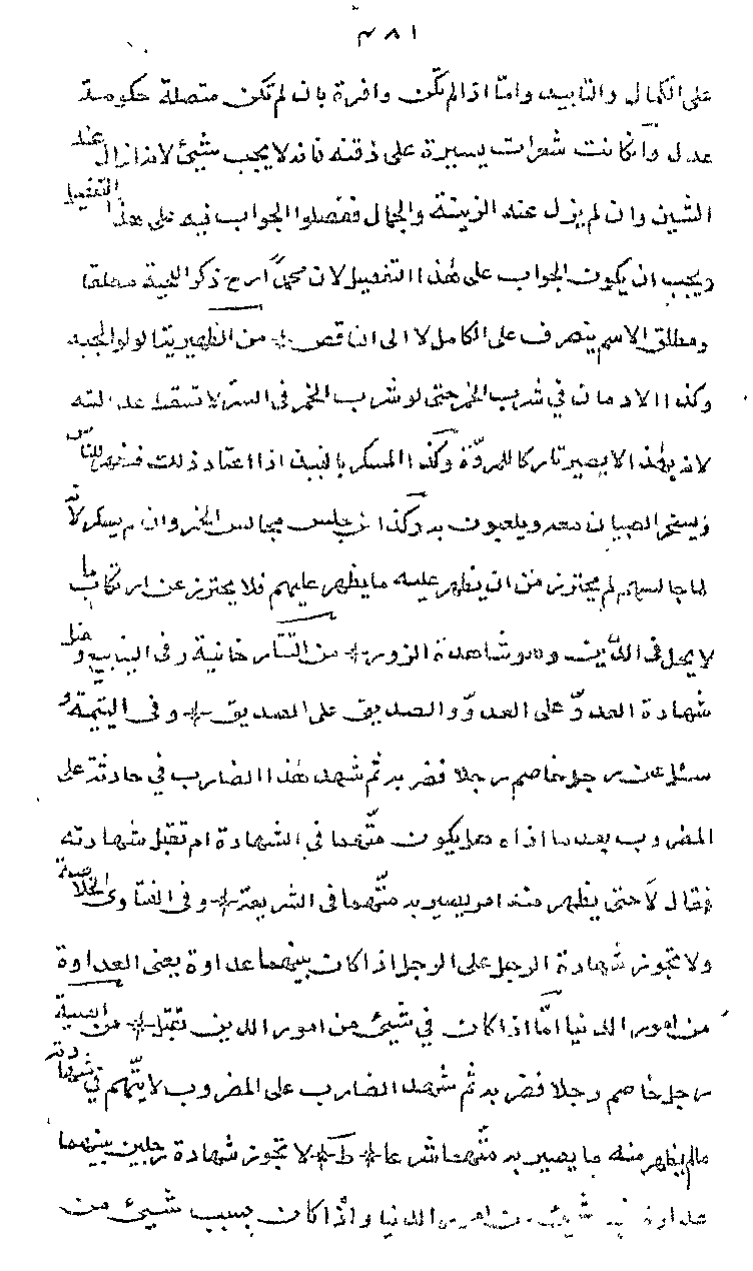 ٤٨١
على الكمال والتابيد واما اذا لم تكن وافرة بان لم تكن متصلة حكومة
عدل وان كانت شعرات يسيرة على ذقنه فانه لا يجب شيئ لانه ازال عنه
الشين وان لم يزل عنه الزينة والجمال ففصلوا الجواب فيه على هذا التفصيل
ويجب ان يكون الجواب على هذا التفصيل لان محمدا رح ذكر اللحية مطلقا
ومطلق الاسم ينصرف على الكامل لا الى الناقص * من الظهيرية
وكذا الادمان في شرب الخمر حتى لو شرب الخمر في السر لا تسقط عدالته
لانه بهذا لا يصير تاركا للمروّة وكذا المسكر بالنبيذ اذا اعتاد ذلك فيظهر للناس
ويسخر الصبيان معه ويلعبون به وكذا من جلس مجالس الخمر وان لم يسكر لانه
لما جالسهم لم يحترز من ان يظهر عليه ما يظهر عليهم فلا يحترز عن ارتكاب ما
لا يحل في الدين وهو شاهدة الزور * من التتارخانية وفي الينابيع و
شهادة العدوّ على العدوّ والصديق على الصديق * وفي اليتيمة و
سئل عن رجل خاصم رجلا فضربه ثم شهد هذا الضارب في حادثة على
المضروب بعد ما اذاه هل يكون متّهما في الشهادة ام تقبل شهادته
فقال لا حتى يظهر منه امر يصير به متّهما في الشريعة * وفي الفتاوى الخلاصة
ولا تجوز شهادة الرجل على الرجل اذا كان بينهما عداوة يعنى العداوة
من امور الدنيا امّا اذا كان في شيئ من امور الدين تقبل * من القنية
رجل خاصم رجلا فضربه ثم شهد الضارب على المضروب لا يتّهم في شهادته
مالم يظهر منه ما يصير به متّهما شرعا * ط * لا تجوز شهادة رجلين بينهما
عداوة في شيئ من امر الدنيا واذا كان بسبب شيئ من